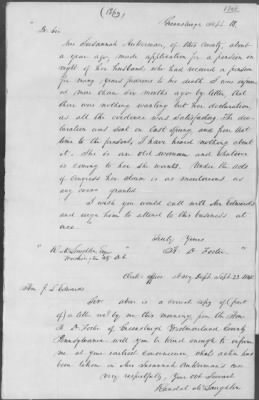 (1863)
Greensburgh Sept. 18,
Dr Sir
Mrs Susannah Ankerman, of this county, about
a year ago, made application for a pension in
right of her husband who had received a pension
for many years previous to his death. I was informed
more than six months ago by letter that
there was nothing wanting but her declaration
as all the evidence was satisfactory. The dec-
laration was sent on last spring and from that
time to the present, I have heard nothing about
it. She is an old woman and whatever
is coming to her she wants. Under the acts
of Congress her claim is as meritorious as
any ever granted.
I wish you would call with Mr Edwards
and urge him to attend to this business, at
once
Truly Yours
H. D. Foster.
R. McLaughlin Esq
Washington City D.C.
Clerk's office Navy Dept. Sept 23.
Hon. J. L. Edwards
Sir above is a correct copy of (part
of) a letter recd by me this morning from the Hon
H D. Foster of Greensburgh Westmoreland County
Pennsylvania. will you be kind enough to inform
me at your earliest convenience, what action has
been taken in Mrs Susannah Ankerman's case
very respectfully, Your obt Servant
Randal McLaughlin